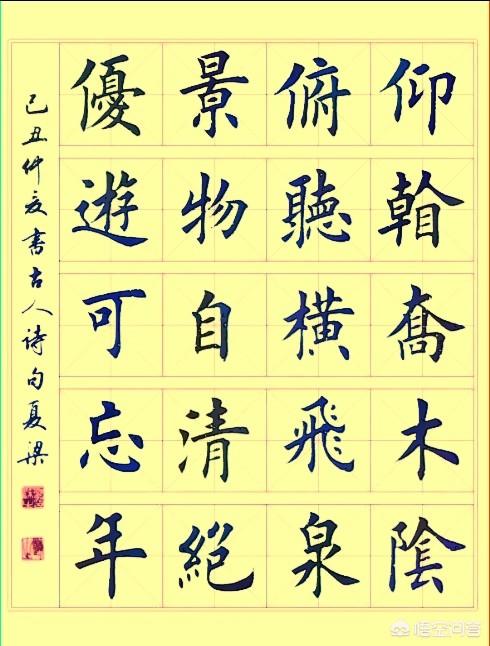 仰看喬木陰
俯聽橫飛泉
景物自清絕
優遊可忘年
己丑仲夏書古人诗句夏梁
悟空问答